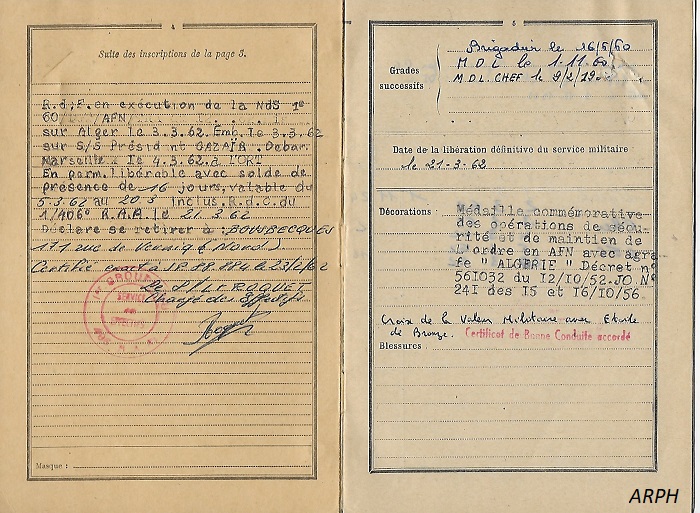 4
Suite des inscriptions de la page 3.
R.d;F.en exécution de la NdS 1e
60/ /AFN/
sur Alger le 3.3.62.Emb.le 3.3.62
sur S/S Présid nt CAZAÏR .Debar.
Marseille . Ie 4.3.62.à L'ORT
En perm.libérable avec solde de
présence de 16 jours,valable du
5.3.62 au 20.3 inclus.R.d.C.du
1/406° R.A.A.le 21.3.62
Déclare se retirer à :BOUSBECQUES
171 rue de (Nord).
Certifié exact à le 23/2/62
Le S/Lt ROQUET
Chargé des Effectifs
1er GROUPE
SERVICE
DES
EFFECTIFS
Masque :
5
Grades
successifs
Brigadier le 16/5/60
M D L le 1-11-60
M.D.L.CHEF le 9/2/
Date de la libération définitive du service militaire
le 21-3-62
Décorations :
Médaille commémorative
des opérations de sécu-
rité et de maintien de
L'ordre en AFN avec agra-
fe " ALGERIE " Décret n°
561032 du 12/10/52.JO N°
24I des I5 et 16/10/56.
Croix de la Valeur Militaire avec Etoile
de Bronze.
Certificat de Bonne Conduite accordé
Blessures :
ARPH